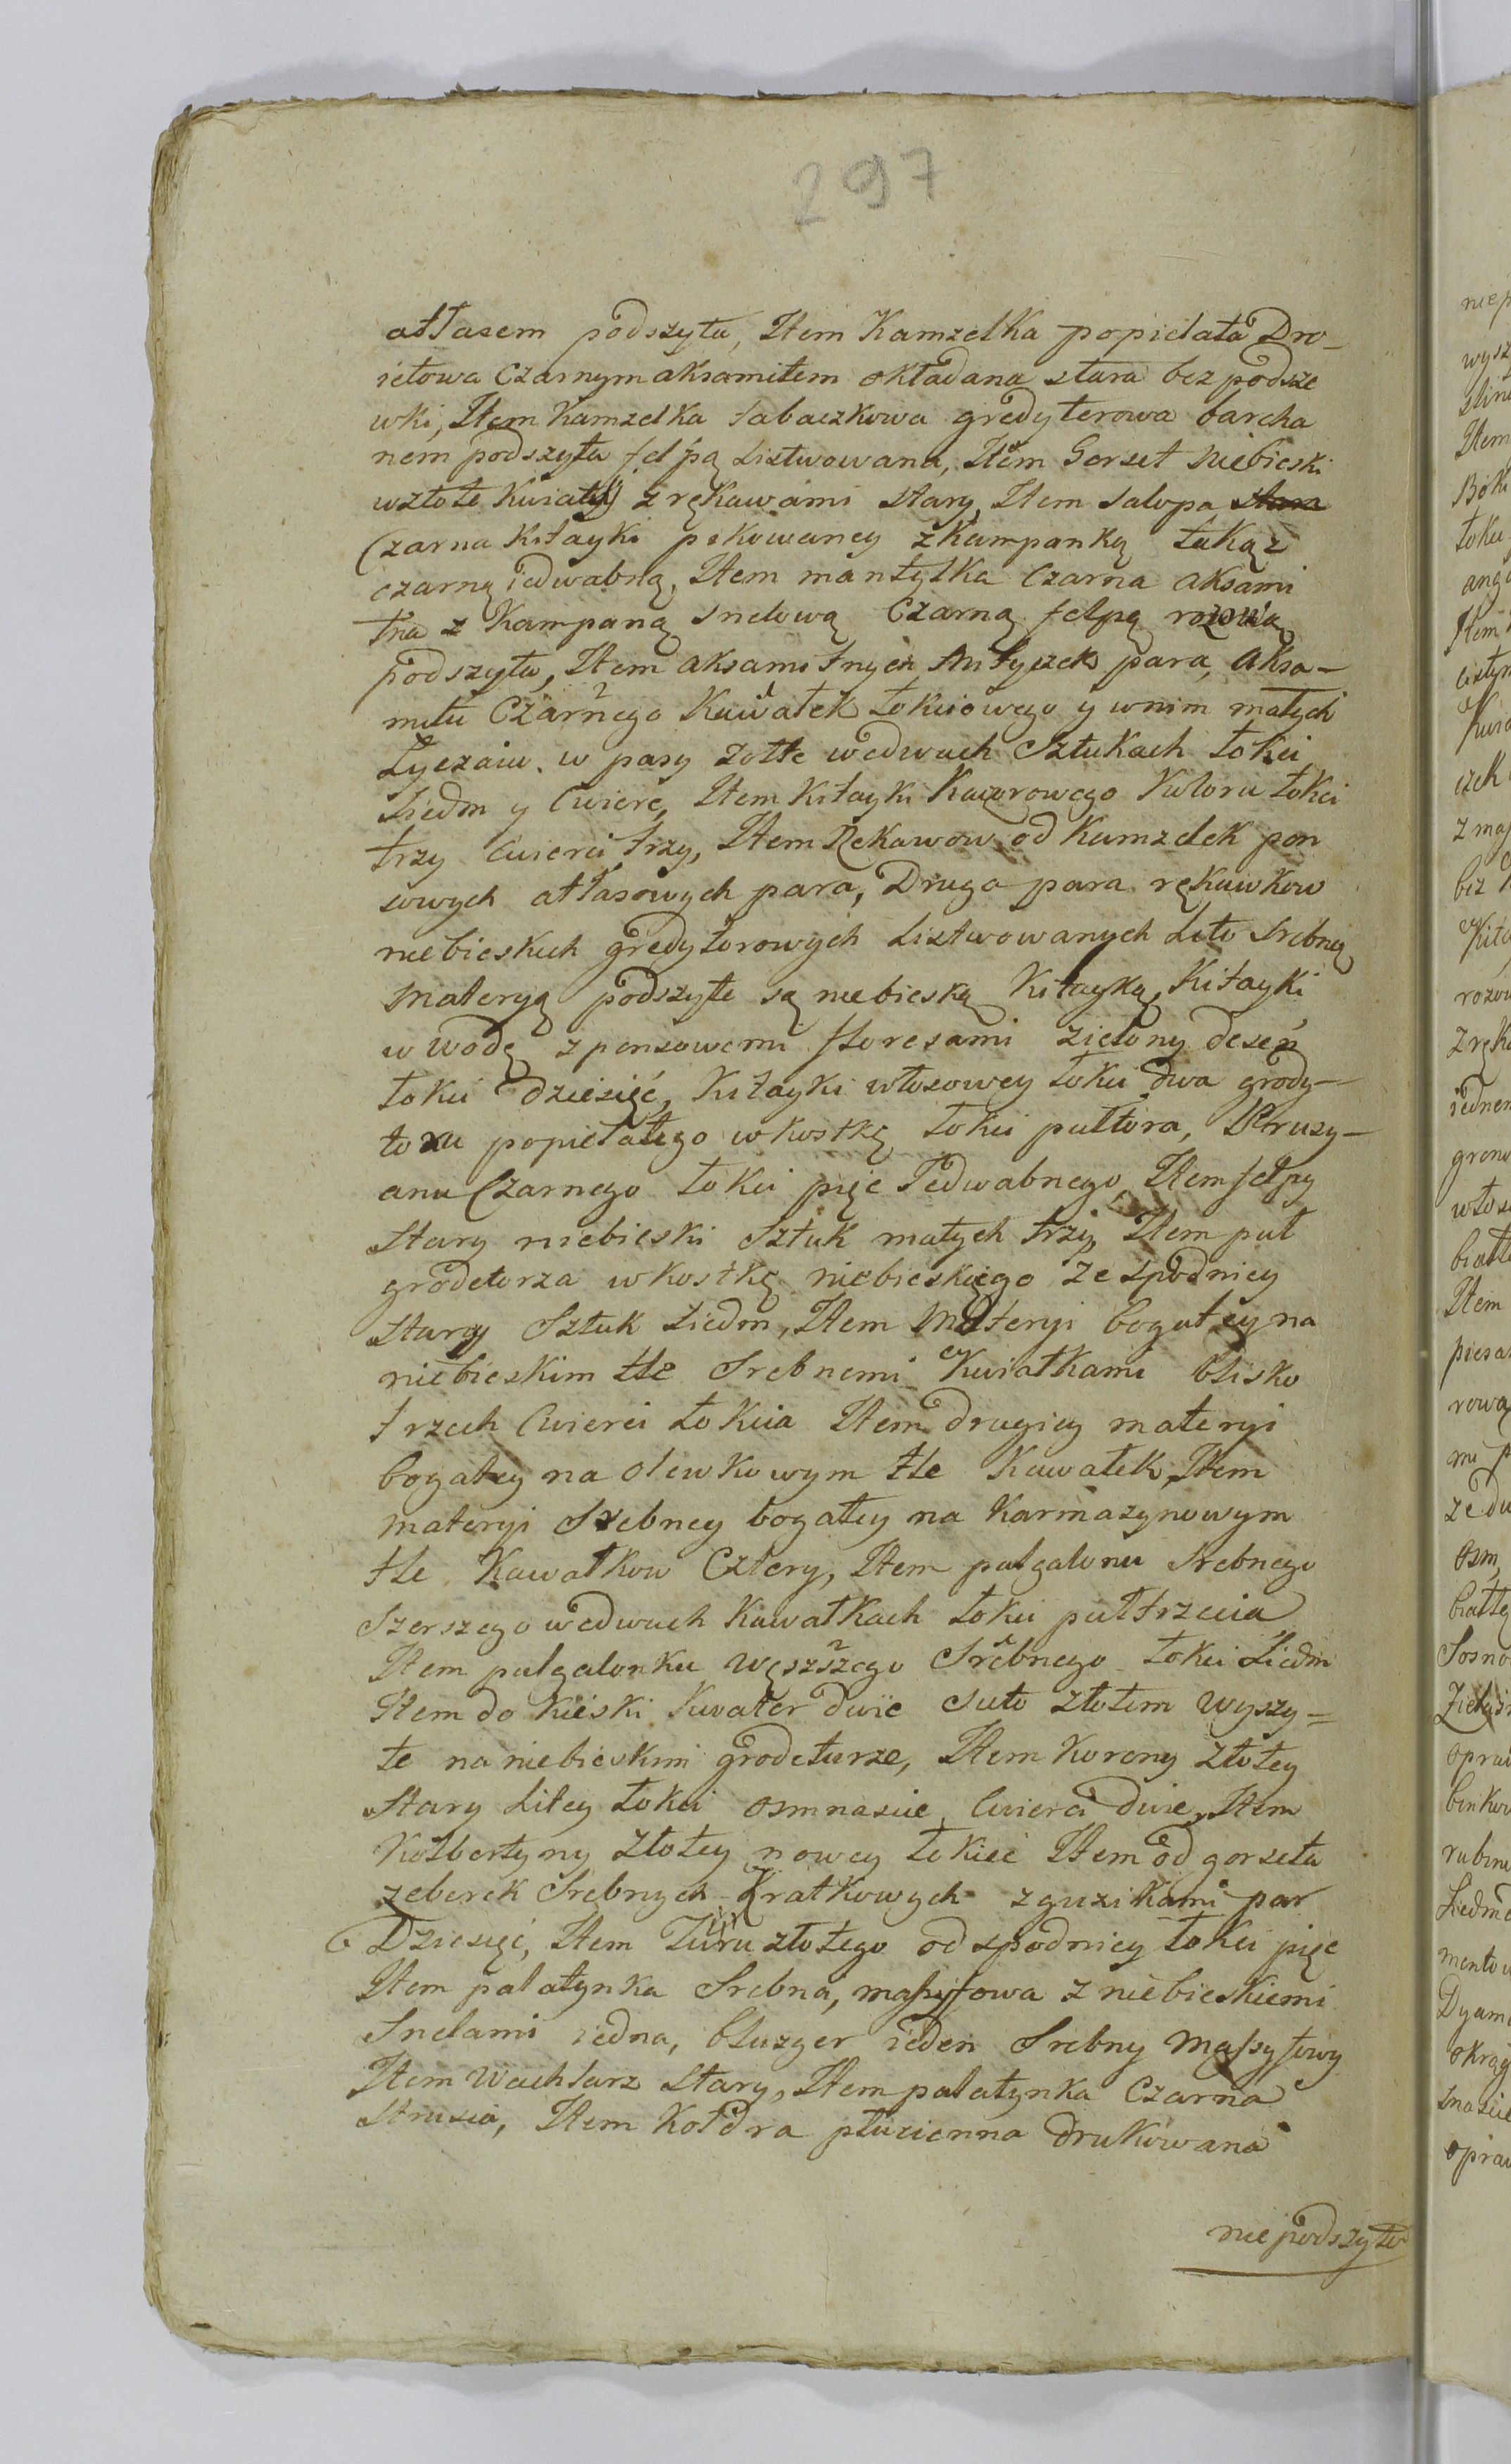 297
atłasem podszyta, Item Kamzelka popielata Dro-
ietowa Czarnym aksamitem okładana stara bez podsze
wki, Item Kamzelka tabaczkowa gredyterowa barcha
nem podszyta felpą listwowana, Item Gorset Niebieski
wzłote kwiaty z rękawami stary, Item Salopa
Czarna Kitayki pikowaney z kampanką takąz
czarną iedwabną, Item mantylka Czarna aksami
tna z Kampaną snelową Czarną felpą rozową
podszyta, Item aksamitnych para, Aksa-
mitu Czarnego Kawałek łokciowego y wnim małych
Łyczaiu w pasy zołte wedwuch Sztukach łokci
Siedm y Cwierć, Item Kitayki Kaworowego Koloru łokci
trzy Cwierci trzy, Item Rękawow od Kamzelek pon
sowych atłasowych para, Druga para rękawkow
niebieskich gredytorowych Listwowanych Lito Srebną
Materyą podszyte są niebieską Kitayką, Kitayki
w wodę z ponsowemi floresami zielony deseń
łokci dziesięć, Kitayki włosowey łokci dwa grody-
toru popielatego wkostkę łokci pułtora, Kruzy-
anu Czarnego łokci pięć Jedwabnego, Item felpy
Stary niebieski Sztuk małych trzy, Item puł
grodetorza wkostkę niebieskiego ze spodnicy
Stary Sztuk Siedm, Item Materyi bogatey na
niebieskim tle Srebnemi Kwiatkami blisko
trzech Cwierci łokcia Item drugiey materyi
bogatey na oliwkowym tle Kawałek, Item
materyi Srebney bogatey na Karmazynowym
tle Kawałkow Cztery, Item pulgalonu Srebnego
Szerszego wedwuch Kawałkach łokci pułtrzecia
Item pulgalonku węzszego Srebnego łokci Siedm
Item do kiiski Kwater dwie suto złotem wyszy=
te na niebieskim grodeturze, Item Korony złotey
Stary Litey łokci osmnascie, Cwierci dwie, Item
Kolbertyny złotey nowey łokieć Item od gorseta
zeberek Srebnych Kratkowych z guzikami par
Dziesięć, Item Turu złotego od spodnicy łokci pięć
Item palatynka Srebna, massyfowa z niebieskiemi
Snelami iedna, bluzger ieden Srebny Massyfowy
Item Wachlarz Stary, Item palatynka Czarna
Strusia, Item Kołdra płucienna drukowana
niepodszyta